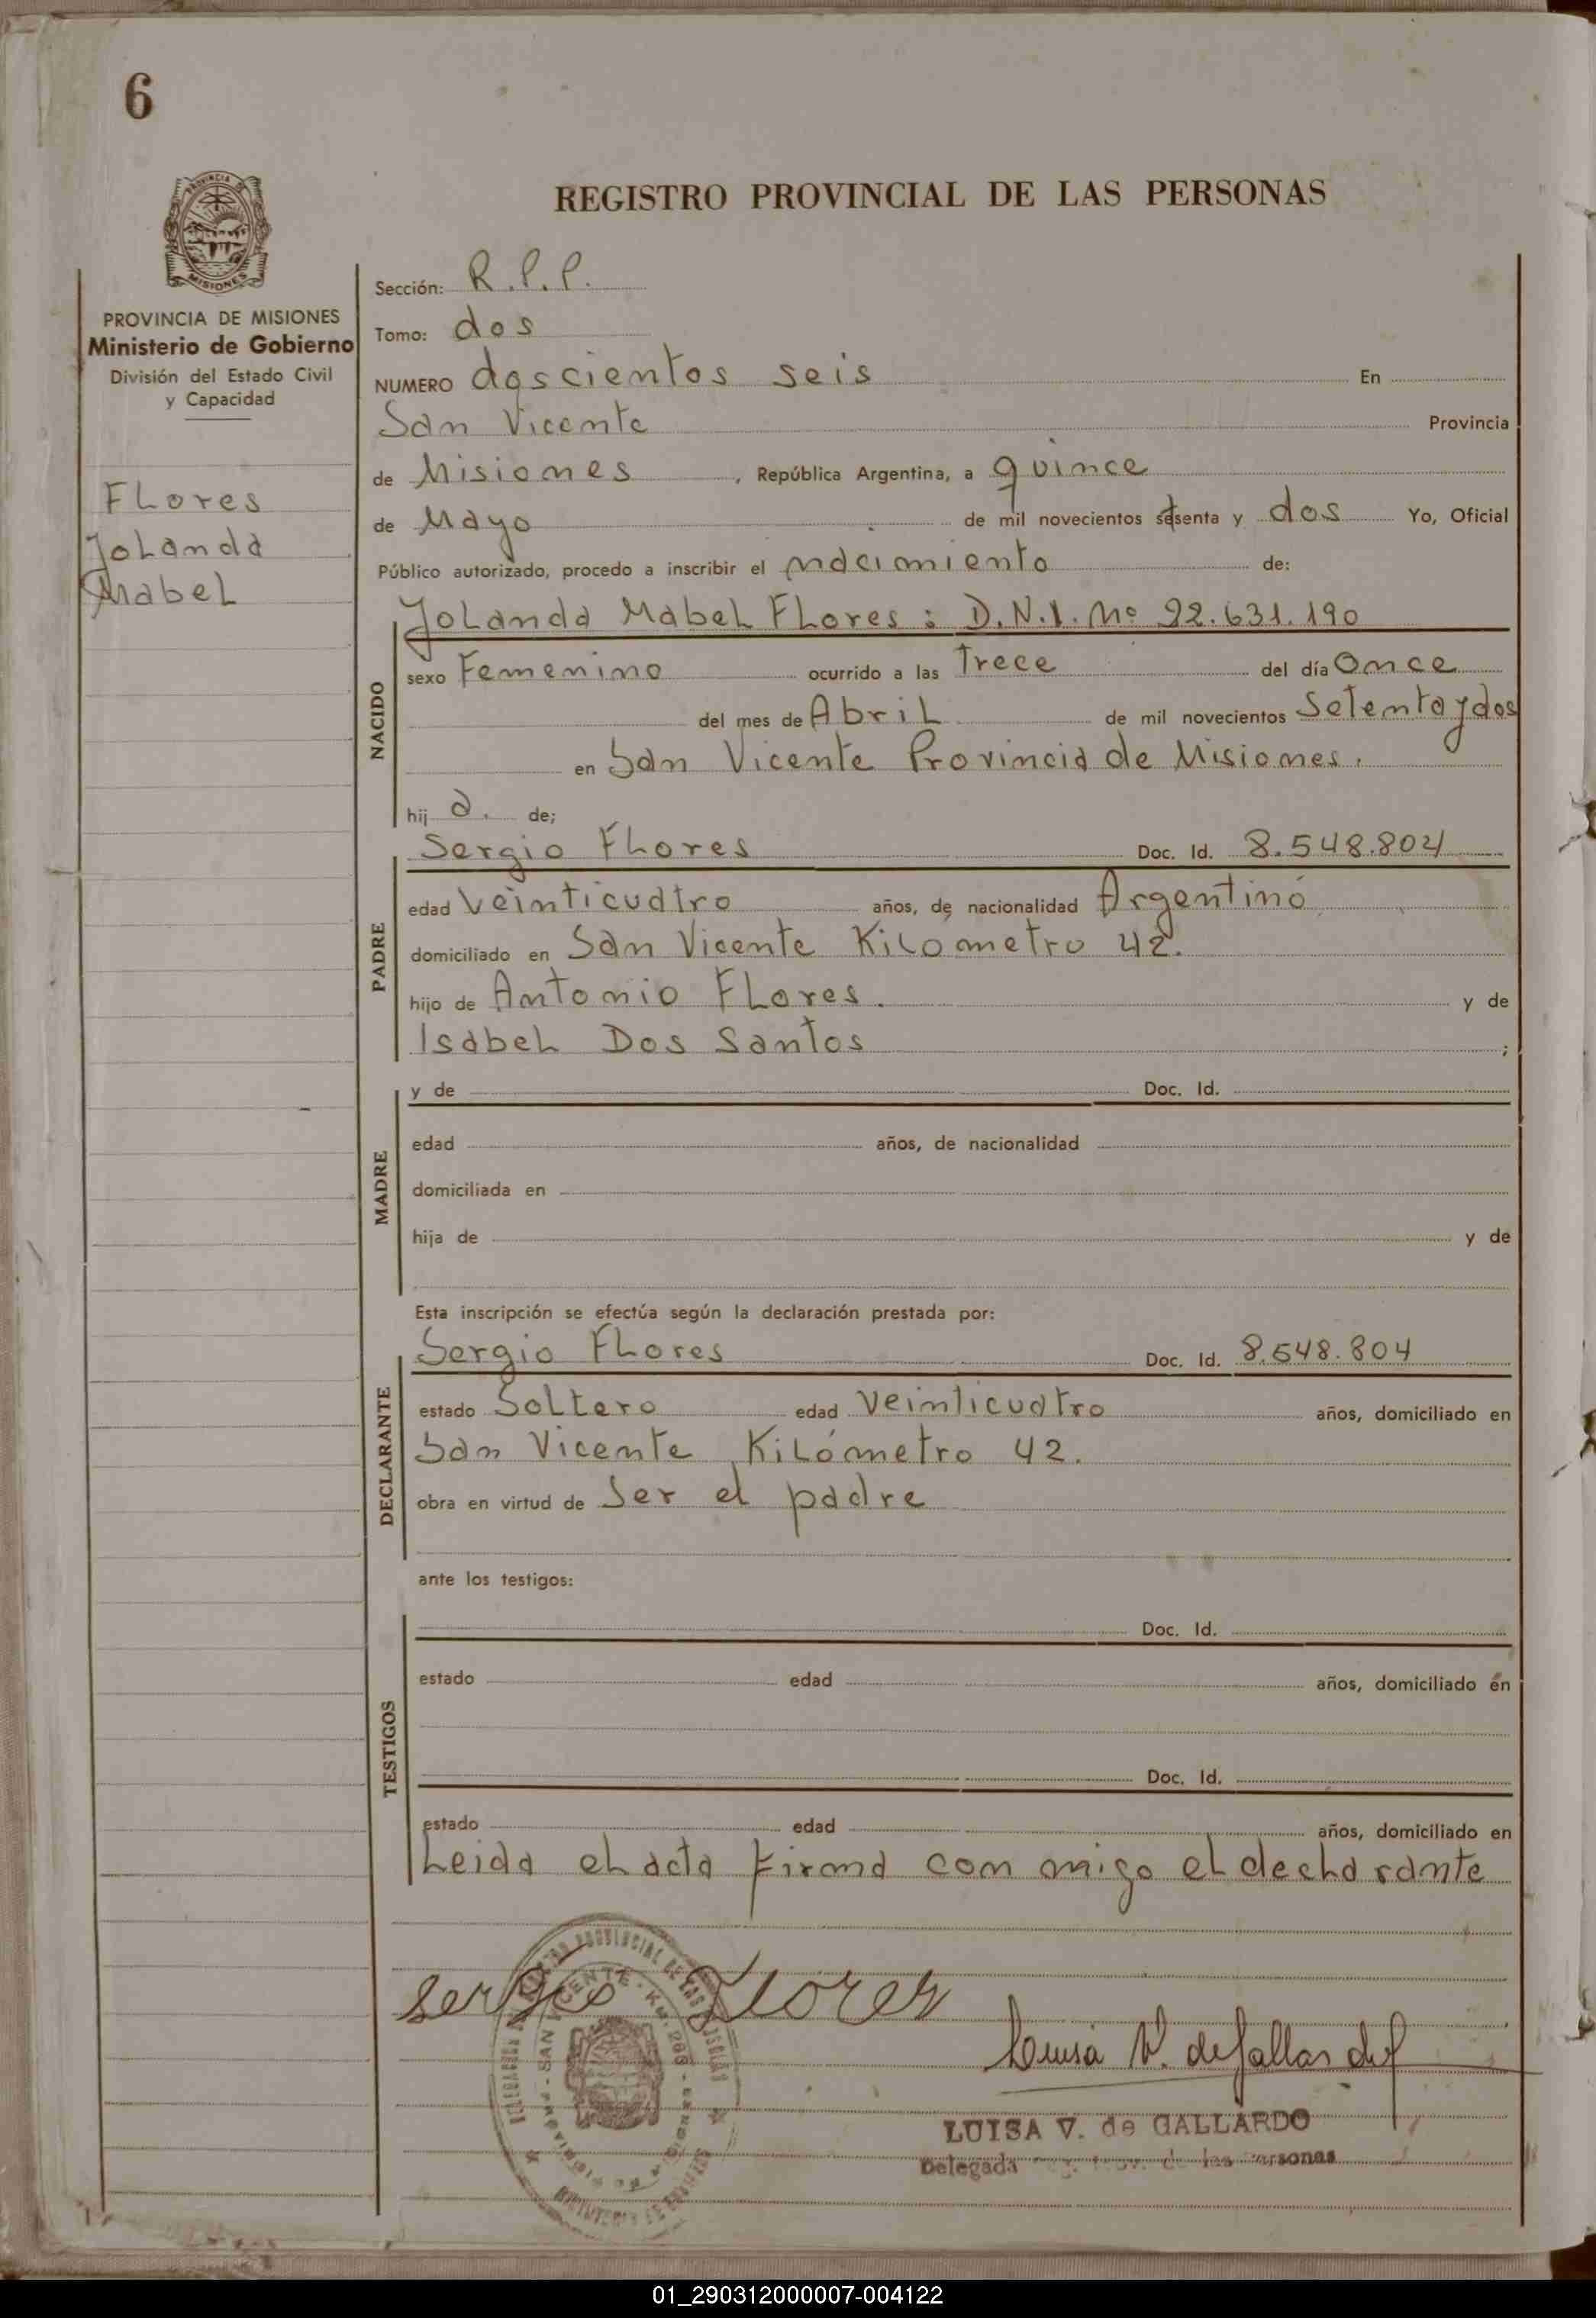 6
PROVINCIA DE
MISIONES
REGISTRO PROVINCIAL DE LAS PERSONAS
PROVINCIA DE MISIONES
Ministerio de Gobierno
División del Estado Civil
y Capacidad
Flores
Yolanda
Mabel
Sección: R.P.P.
Tomo: dos
NUMERO doscientos seis En
San Vicente Provincia
de Misiones, República Argentina, a quince
de Mayo de mil novecientos setenta y dos Yo, Oficial
Público autorizado, procedo a inscribir el nacimiento de:
Yolanda Mabel Flores: D.N.I. Nº 22.631.190
NACIDO
sexo Femenino ocurrido a las Trece del día Once
del mes de Abril de mil novecientos Setenta y dos
en San Vicente Provincia de Misiones.
hij a. de;
PADRE
Sergio Flores Doc. Id. 8.548.804
edad Veinticuatro años, de nacionalidad Argentino
domiciliado en San Vicente Kilómetro 42.
hijo de Antonio Flores. y de
Isabel Dos Santos ;
MADRE
y de Doc. Id.
edad años, de nacionalidad
domiciliada en
hija de y de
Esta inscripción se efectúa según la declaración prestada por:
DECLARANTE
Sergio Flores Doc. Id. 8.548.804
estado Soltero edad Veinticuatro años, domiciliado en
San Vicente Kilómetro 42.
obra en virtud de Ser el padre
ante los testigos:
TESTIGOS
Doc. Id.
estado edad años, domiciliado en
Doc. Id.
estado edad años, domiciliado en
Leida el acta Firma con migo el declarante
sergio Flores
Luisa V. de Gallardo
LUISA V. de GALLARDO
Delegada de las Personas
01_290312000007-004122